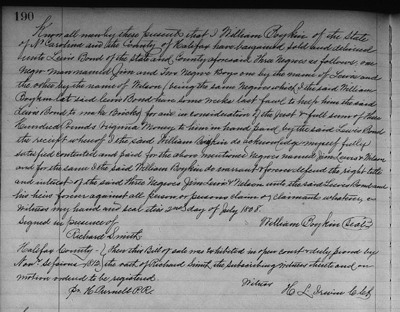 190
Know all men by these presents that I William Boykin of the State
of No Carolina and the County of Halifax have bargained sold and delivered
unto Lewis Bond of the State and County aforesaid three Negroes as follows, one
Negro man named Jim and Two Negro Boys one by the name of Lewis and
the other by the name of Nelson (being the same Negroes which I the said William
Boykin let said Lewis Bond have some weeks last to keep them the said
Lewis Bond to make Bricks) for and in consideration of the Just & full sum of three
Hundred Pounds Virginia Money to him in hand paid by the said Lewis Bond
the receipt whereof I the said William Boykin do acknowledge myself fully
satisfied contented and paid for the above mentioned Negroes named Jim Lewis & Nelson
and for the same I the said William Boykin do warrant & forever defend the right title
and interest of the said Three Negroes Jim Lewis & Nelson unto the said Lewis Bond and
his heirs forever against all person or persons claim or claimants whatever, in
witness my hand and seal this 2nd day of July 1808.
William Boykin (Seal)
Signed in presence of
Richard Smith
Halifax County } then this Bill of sale was exhibited in open court & duly proved by
Novr Sessions 1812 } the oath of Richard Smith, the subscribing witness thereto and on
motion ordered to be registered.
Witness
H. L. Irwin C. Clk